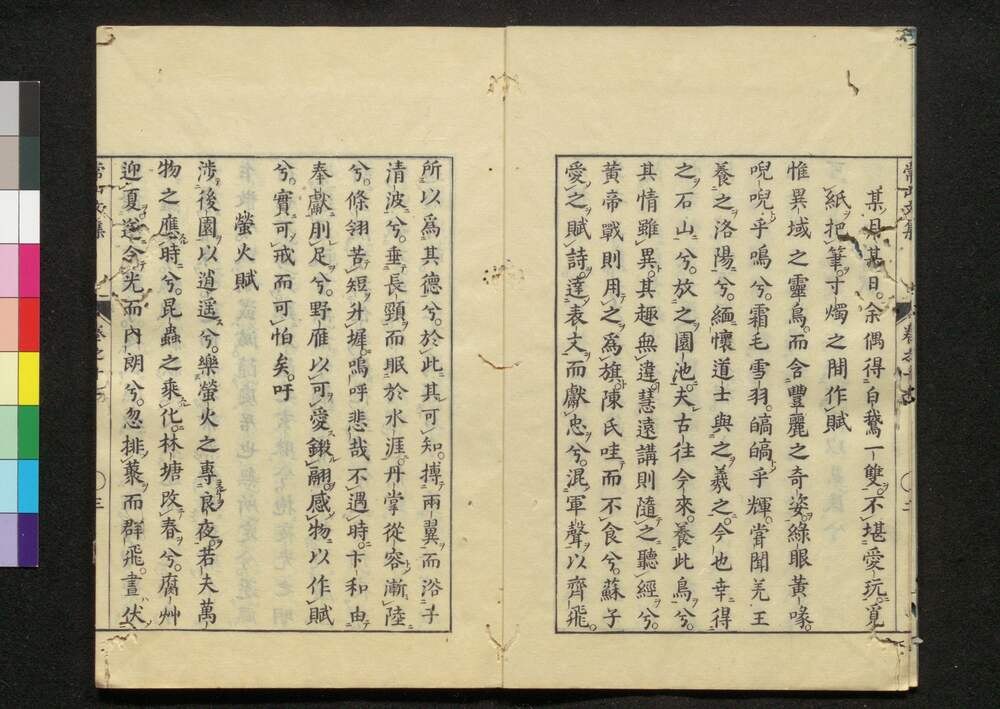 某月某日。余偶得白鵞一雙。不堪愛玩。覓
紙把筆。寸燭之間作賦
惟異域之靈鳥。而含豐麗之奇姿。綠眼黃喙。
唲唲乎鳴兮。霜毛雪羽。皜皜乎輝。嘗聞羌王
養之洛陽兮。緬懷道士與之羲之。今也幸得
之石山兮。放之園池。夫古往今來。養此鳥兮。
其情雖異。其趣無違。慧遠講則隨之聽經兮。
黃帝戰則用之爲旗。陳氏哇而不食兮。蘇子
愛之賦詩。達表文而獻忠兮。混軍聲以齊飛。
所以爲其德兮。於此其可知。搏兩翼而浴于
清波兮。垂長頸而眠於水涯。丹掌從容漸陸
兮。條翎苦短升墀。嗚呼悲哉不遇時。卞和由
奉獻刖足兮。野雁以可愛鍛翮。感物以作賦
兮。實可戒而可怕矣。吁
螢火賦
涉後園以逍遥兮。樂螢火之專良夜。若夫萬
物之應時兮。昆蟲之乘化。林塘改春兮。腐艸
迎夏。逆令光而內朗兮。忽排蒙而群飛。晝伏